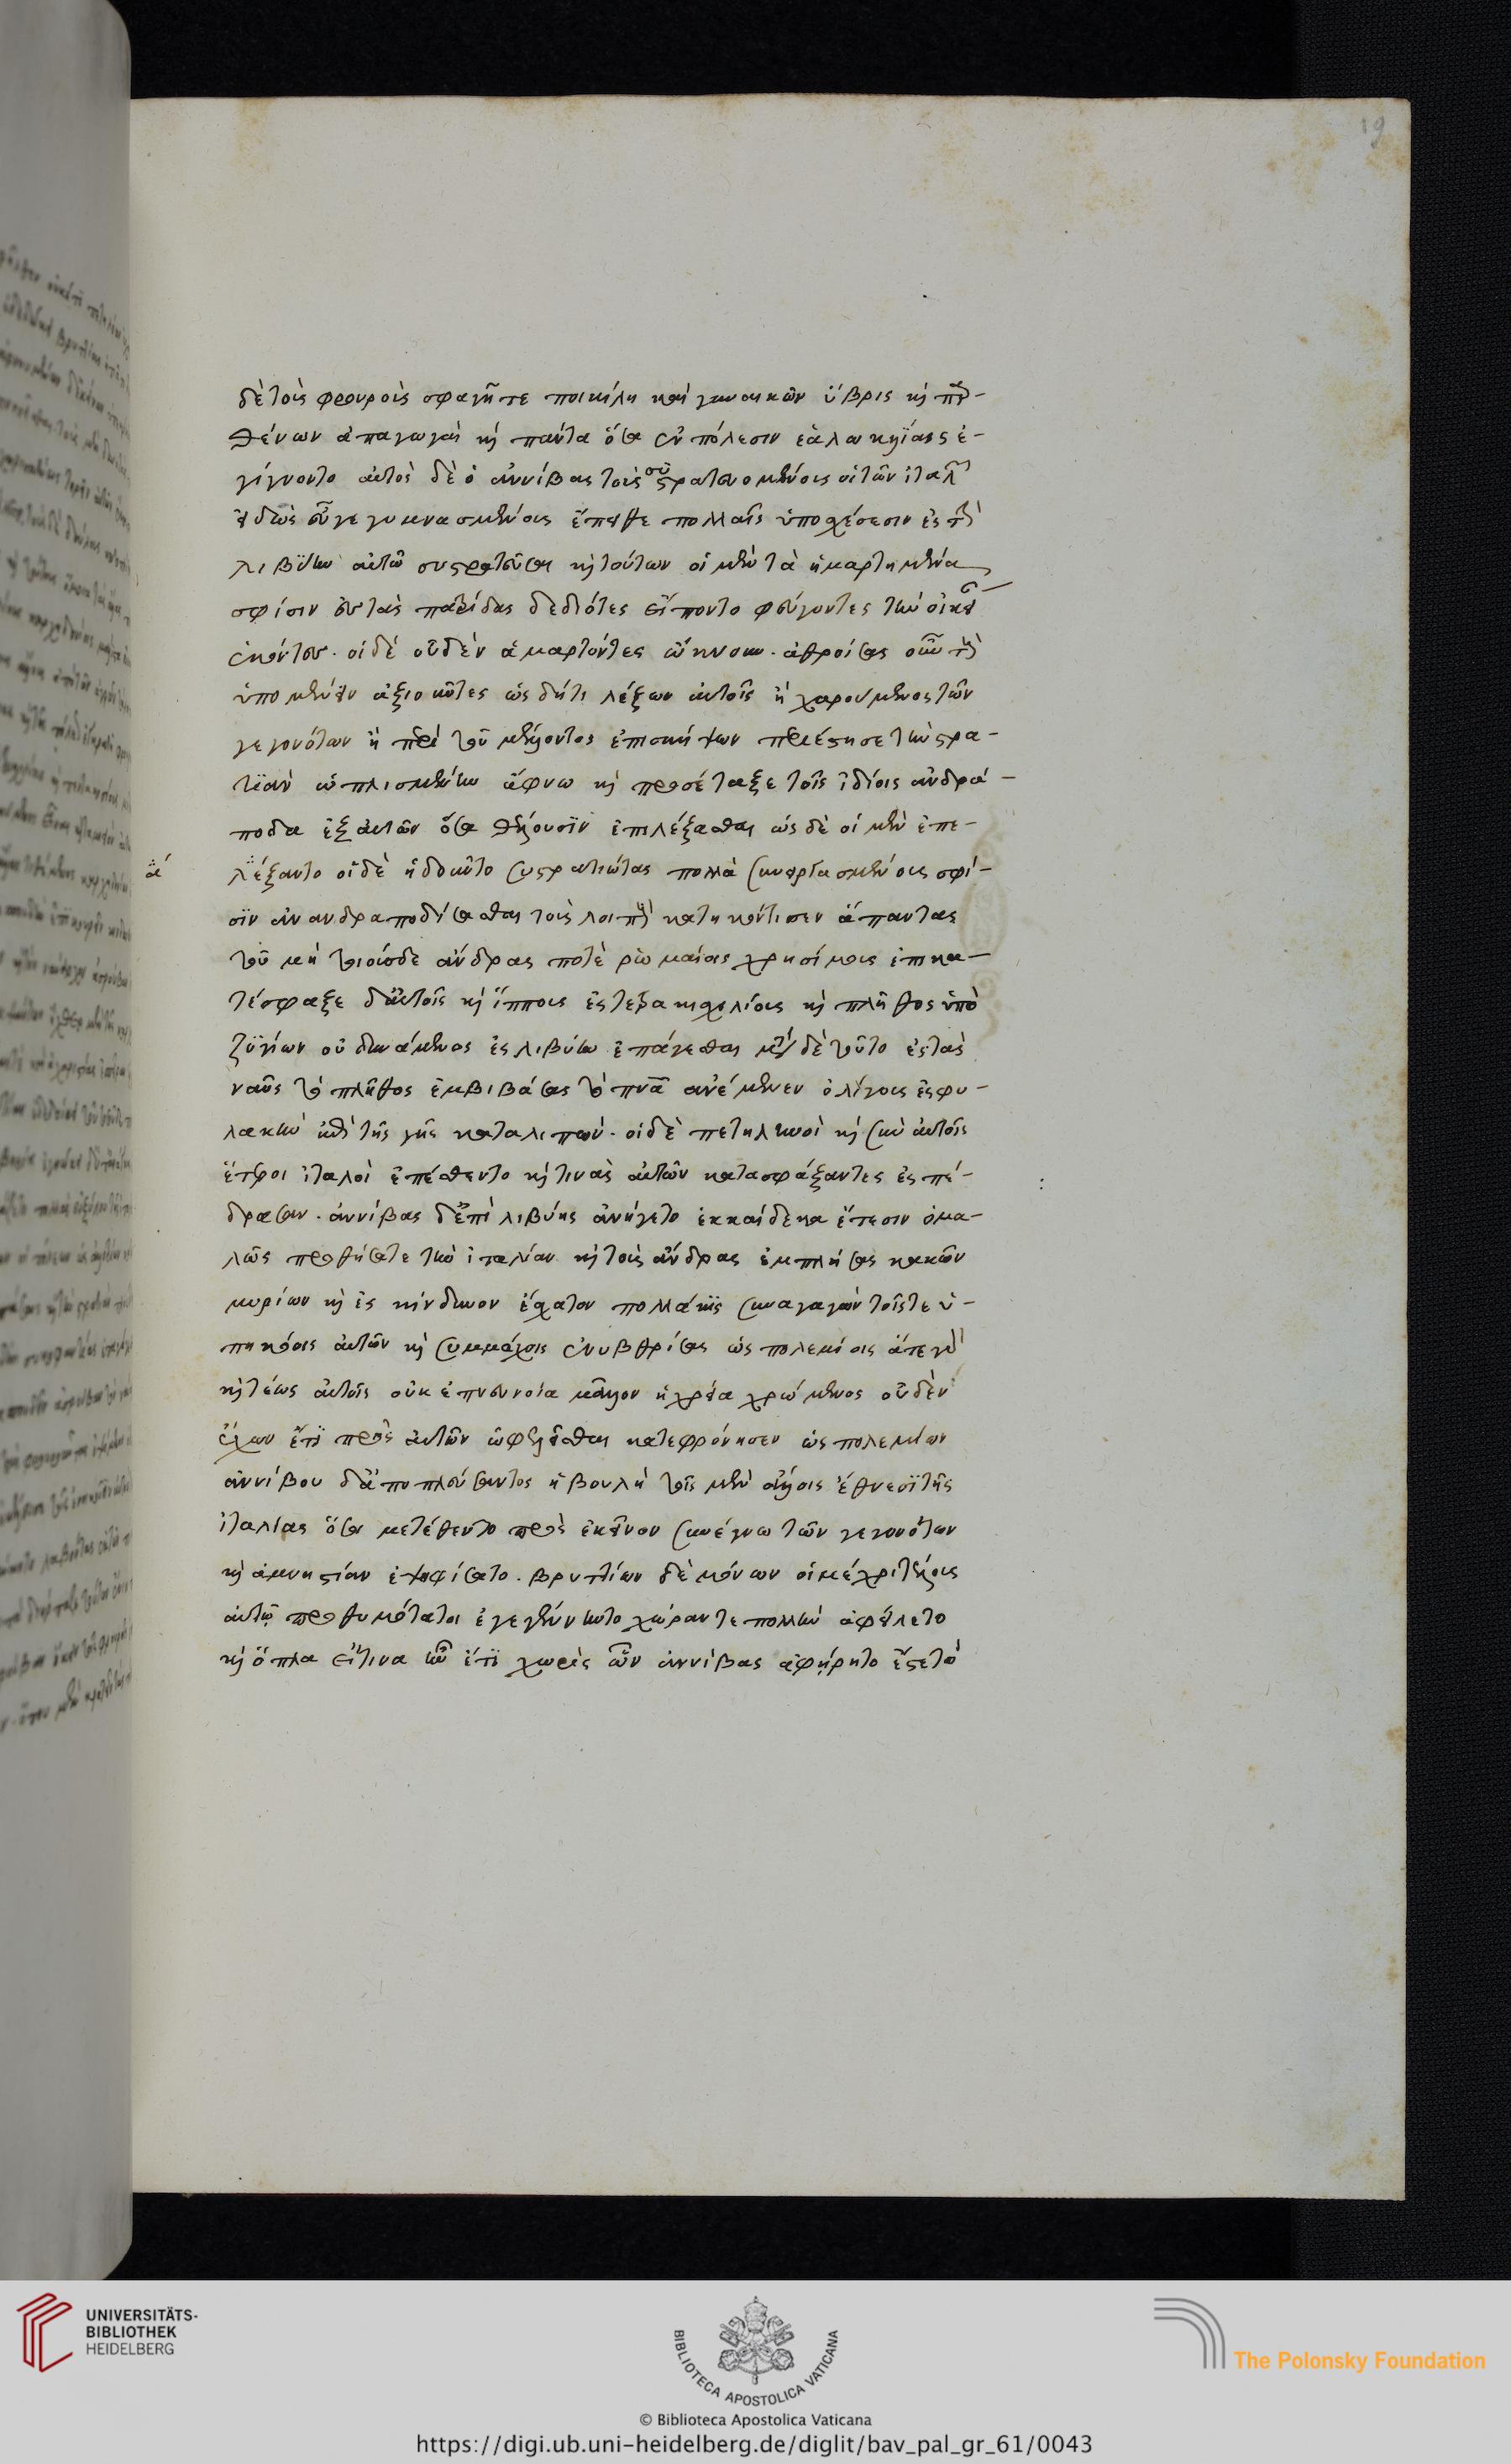 δὲ τοὺς φρουροὺς σφαγῆ τε ποικίλη καὶ γυναικῶν ὕβρις κ̀ παρ-
θένων ἀπαγωγαὶ κ̀ πάντα ὅσα ἐν πόλεσιν ἑαλωκυΐαις ἐ-
γίγνοντο αὐτὸς δὲ ὁ ἀννίβας τοὺς συστρατευομένους οἱ τῶν ἰταλῶν
εἰδὼς εὖ γεγυμνασμένους ἔπειθε πολλαῖς ὑποσχέσεσιν ἐς τὴν
λιβύην αὐτῶ συστρατεῦσαι κ̀ τούτων οἱ μὲν τὰ ἡμαρτημένα
σφίσιν ἐς τὰς πατρίδας δεδιότες εἵποντο φεύγοντες τὴν οἰκείαν
ἑκόντες. οἱ δὲ οὐδὲν ἁμαρτόντες ὤκνουν. ἀθροίσας οὖν τοὺς
ὑπομένειν ἀξιοῦντες ὡς δή τι λέξων αὐτοῖς ἢ χαρούμενος τῶν
γεγονότων ἢ περὶ τοῦ μέλλοντος ἐπισκήψων περιέστησε τὴν στρα-
τϊὰν ὡπλισμένην ἄφνω κ̀ προσέταξε τοῖς ἰδίοις ἀνδρά-
ποδα ἐξ αὐτῶν ὅσα θέλουσϊν ἐπιλέξασθαι ὡς δὲ οἱ μὲν ἐπε-
λέξαντο οἱ δὲ ἠδοῦντο συστρατιώτας πολλὰ συνειργασμένους σφί-
σϊν ἀνανδραποδίσασθαι τοὺς λοιποὺς κατηκόντισεν ἅπαντας
τοῦ μὴ τοιούσδε ἄνδρας ποτὲ ῥωμαίοις χρησίμους ἐπικα-
τέσφαξε δ' αὐτοῖς κ̀ ἵππους ἐς τετρακισχιλίους κ̀ πλῆθος ὑπο
ζϋγίων οὐ δυνάμενος ἐς λιβύην ἐπάγεσθαι μετὰ δὲ τοῦτο ἐς τὰς
ναῦς τὸ πλῆθος ἐμβιβάσας τὸ πνα ἀνέμενεν ὀλίγους ἐς φυ-
λακὴν ἐπὶ τῆς γῆς καταλιπών. οἱ δὲ πετηλινοὶ κ̀ σὺν αὐτοῖς
ἕτεροι ἰταλοὶ ἐπέθεντο κ̀ τινὰς αὐτῶν κατασφάξαντες ἐς πέ-
δρασαν. ἀννίβας δ' ἐπὶ λιβύης ἀνήγετο ἑκκαίδεκα ἔτεσιν ὁμα-
λῶς πορθήσας τε τὴν ἰταλίαν κ̀ τοὺς ἄνδρας ἐμπλήσας κακῶν
μυρίων κ̀ ἐς κίνδυνον ἔσχατον πολλάκϊς συναγαγὼν τοῖς τε ὑ-
πηκόοις αὐτῶν κ̀ συμμάχοις ἐνυβρίσας ὡς πολεμίοις ἅτε γὰρ
κ̀ τέως αὐτοῖς οὐκ ἐπ' εὐνοία μᾶλλον ἢ χρεία χρώμενος οὐδὲν
ἔχων ἔτϊ πρὸς αὐτῶν ὠφελεῖσθαι κατεφρόνησεν ὡς πολεμίων
ἀννίβου δ' ἀποπλεύσαντος ἡ βουλὴ τοῖς μὲν ἄλλοις ἔθνεσϊ τῆς
ἰταλίας ὅσα μετέθεντο πρὸς ἐκεῖνον συνέγνω τῶν γεγονότων
κ̀ ἀμνηστίαν ἐψηφίσατο. βρυττίων δὲ μόνων οἳ μέχρι τέλους
αὐτῷ προθυμότατοι ἐγεγένηντο χώραν τε πολλὴν ἀφείλετο
κ̀ ὅπλα εἴ τινα ἦν ἔτϊ χωρὶς ὧν ἀννίβας ἀφῄρητο ἔς τε τὸ
19
UNIVERSITÄTS-
BIBLIOTHEK
HEIDELBERG
BIBLIOTECA APOSTOLICA VATICANA
The Polonsky Foundation
© Biblioteca Apostolica Vaticana
https://digi.ub.uni-heidelberg.de/diglit/bav_pal_gr_61/0043